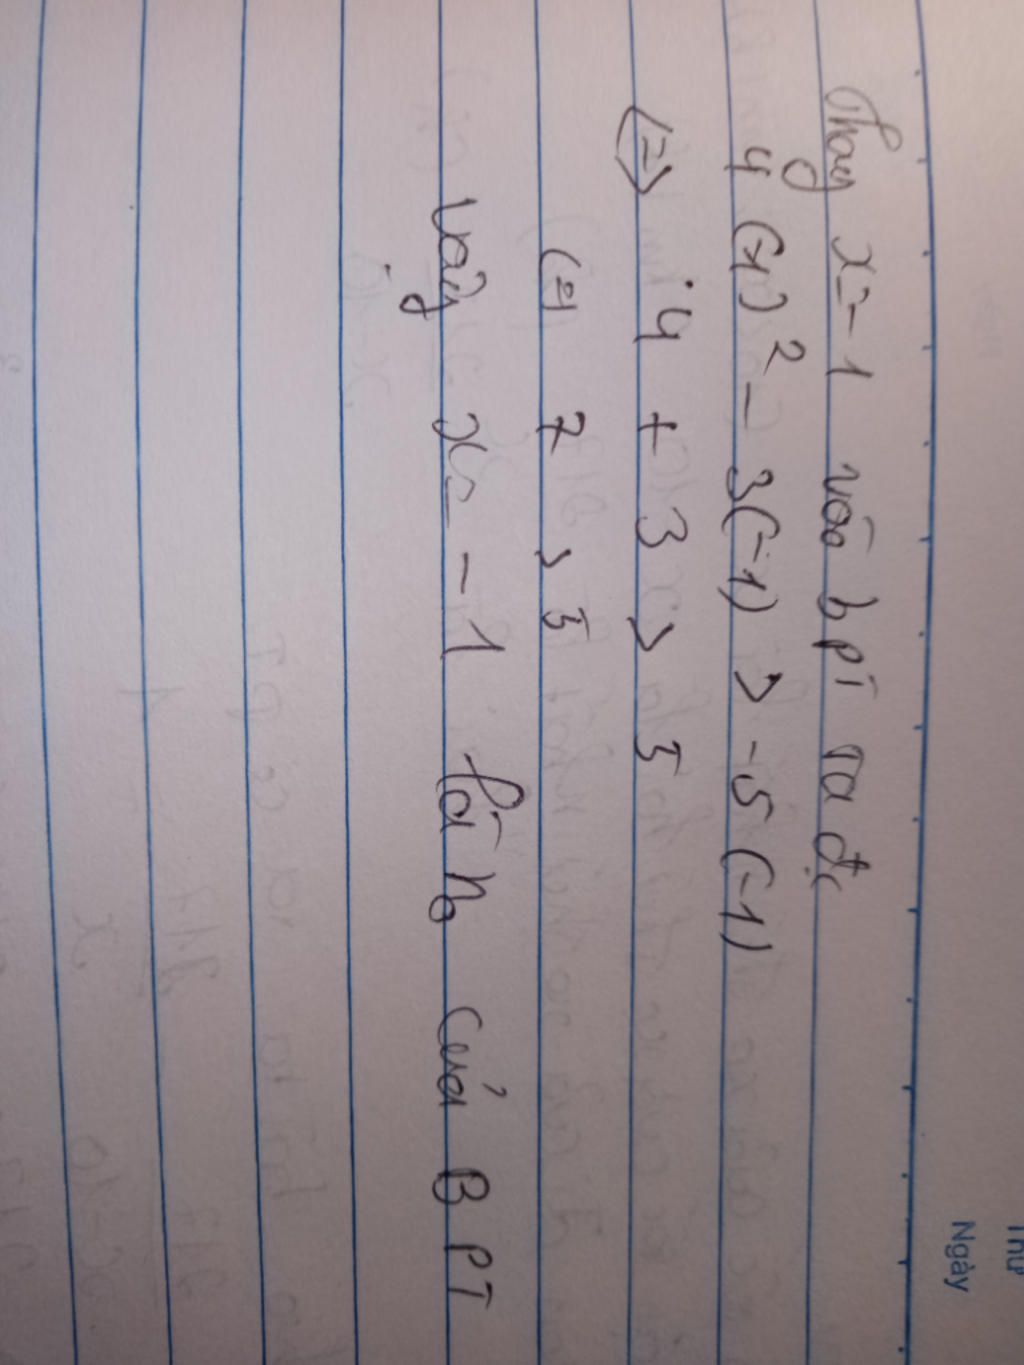 Thứ
Ngày
Thay x=-1 vào bpt ta đc
4 (-1)² - 3(-1) > -5 (-1)
(=) 4 + 3 > 5
(=) 7 > 5
Vậy x=-1 là no của BPT